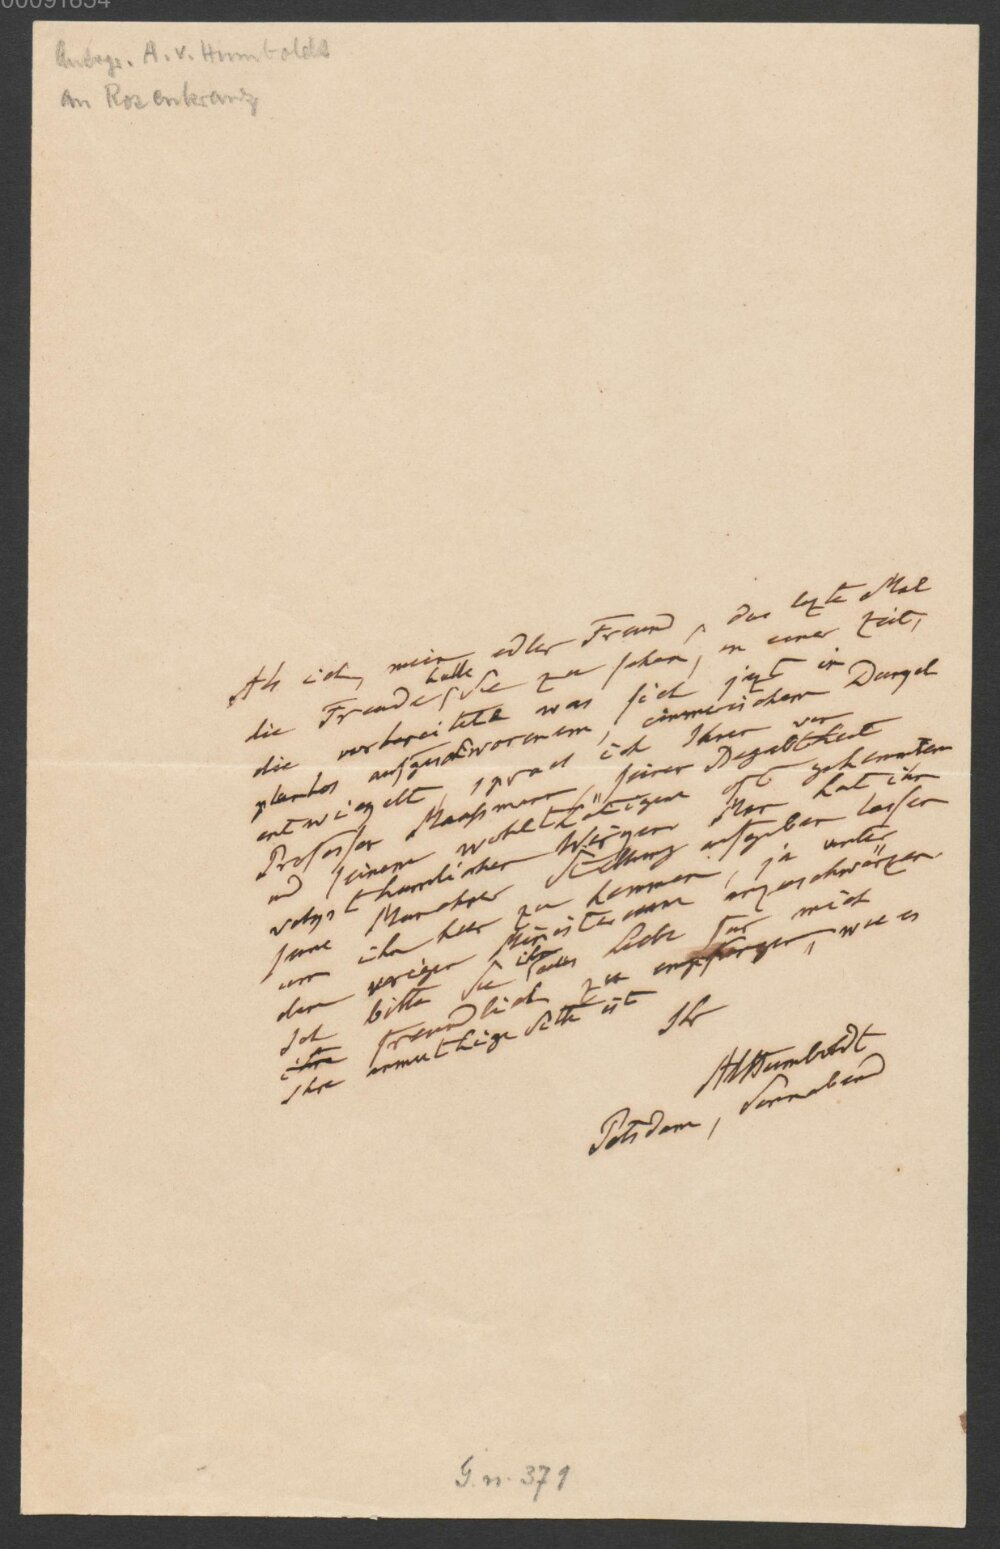 00091654
A. v. Humboldt
An Rosenkranz
Als ich, mein edler Freund, das lezte Mal
die Freude hatte Sie zu sehen, in einer Zeit,
die vorbereitete was sich jezt in
planlos aufgeschworenem, cimmerischem Dunkel
entwickelt, sprach ich Ihnen von
Professor Massmann, seiner
und seinem wohlthätigen oft gekannten
volksthümlichen Wirken. Man hat ihn
seine Münchner Stellung aufgeben lassen
um ihn hier zu hemmen, ja unter
dem vorigen Ministerium anzuschwärzen
Ich bitte Sie ihn aus Liebe für mich
freundlich zu empfangen, wie es
Ihre anmuthige Sitte ist
Ihr
AlHumboldt
Potsdam, Sonnabend
G. n. 379